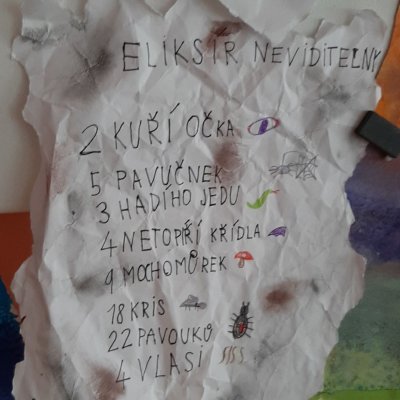 ELIKSÍR NEVIDITELNÝ
2 KUŘÍ OČKA
5 PAVUČNEK
3 HADÍHO JEDU
4 NETOPÍŘÍ KŘÍDLA
9 MOCHOMŮREK
18 KRIS
22 PAVOUKO
4 VLASI